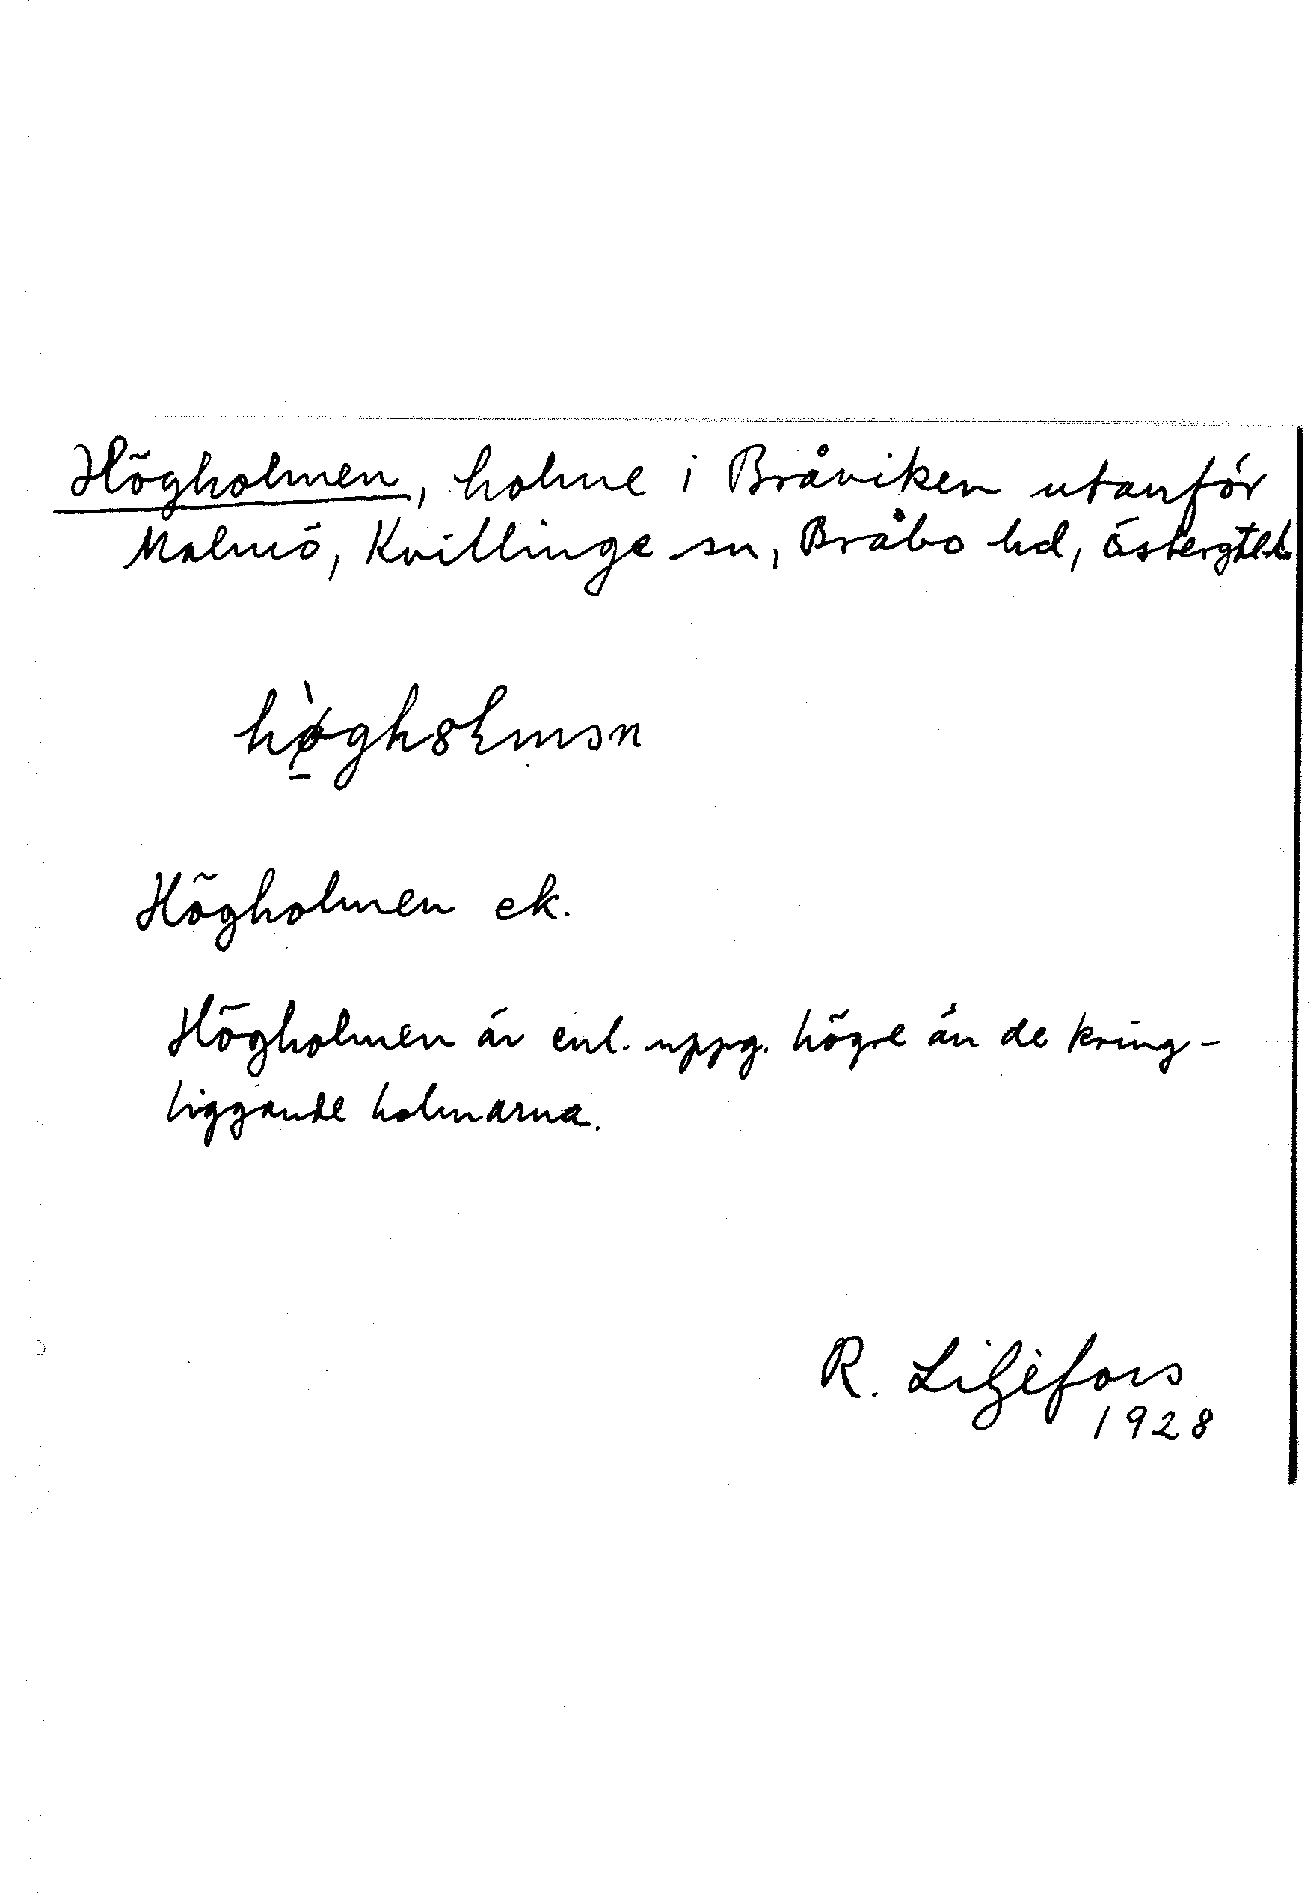 Högholmen, holme i Bråviken utanför
Malmö, Kvillinge sn, Bråbo hd, Östergtld
Högholmen ek.
Högholmen är enl. uppg. högre än de kring-
liggande holmarna.
R. Liljefors
1928